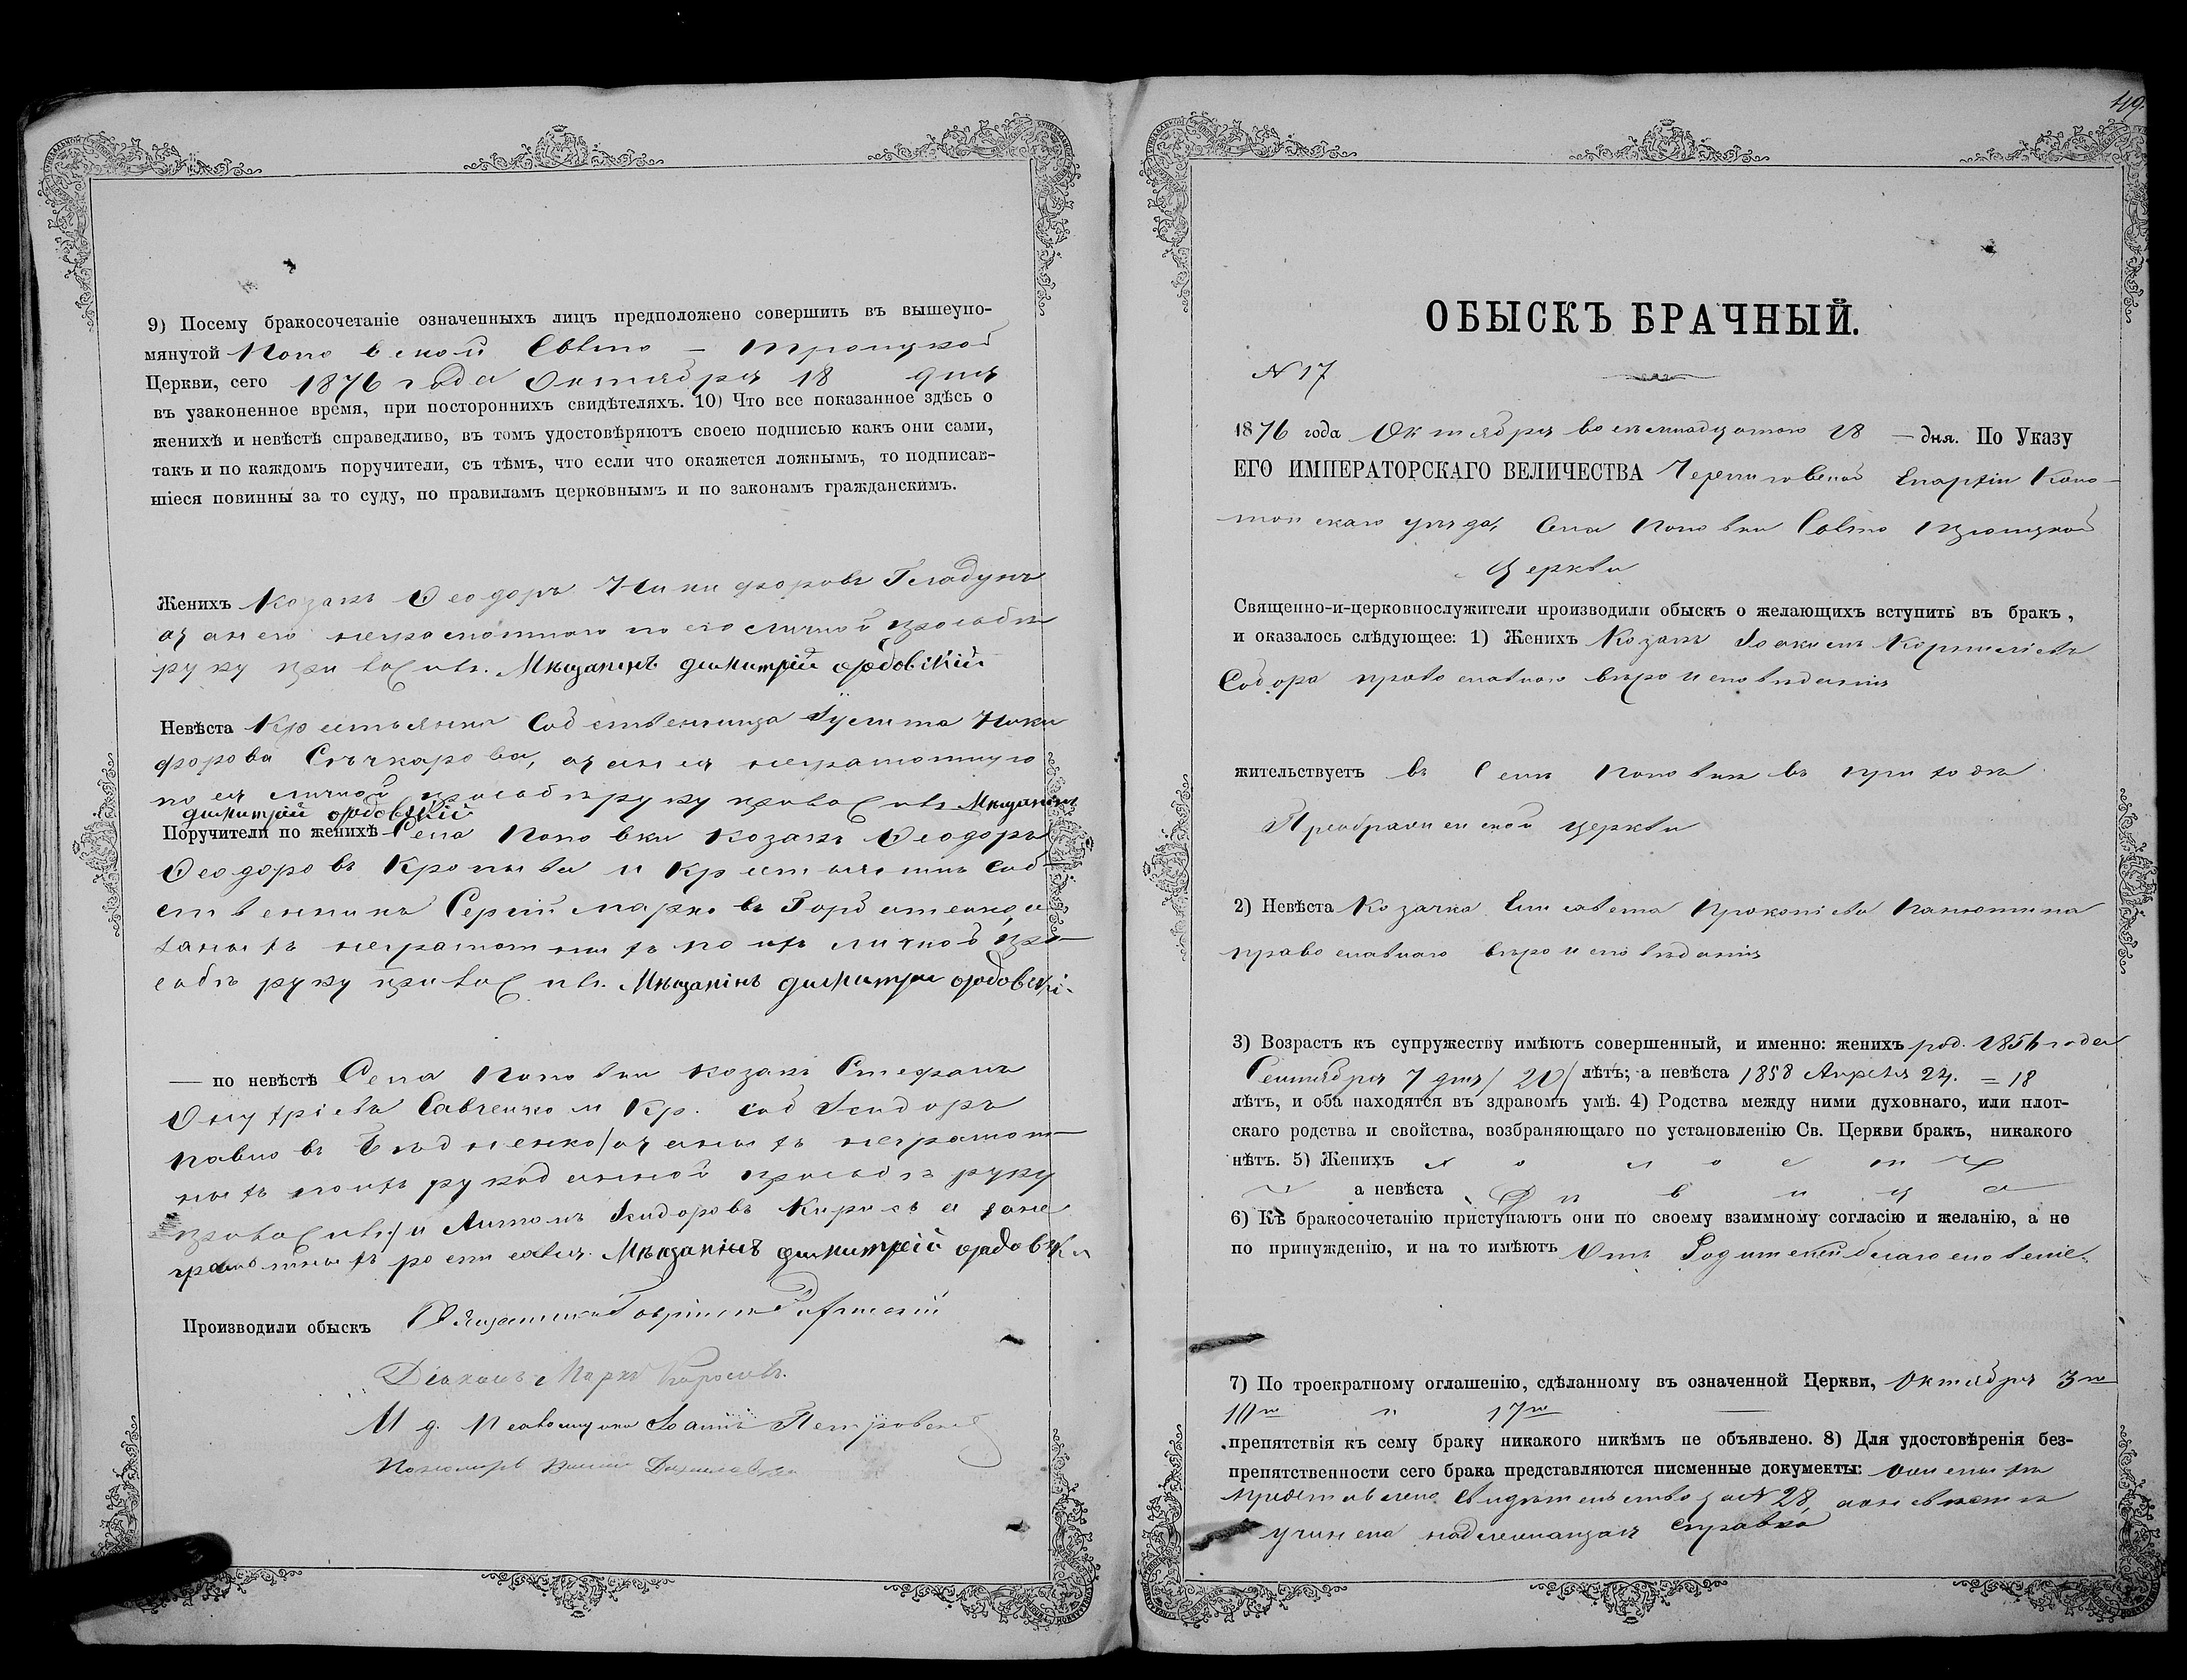 9) Посему бракосочетаніе означенныхъ лицъ предположено совершить въ вышеупо-
мянутой Поповской Свято – Троицкой
Церкви, сего 1876 года Октября 18 дня
въ узаконенное время, при постороннихъ свидѣтеляхъ. 10) Что все показанное здѣсь о
женихѣ и невѣстѣ справедливо, въ томъ удостовѣряютъ своею подписью какъ они сами,
такъ и по каждомъ поручители, съ тѣмъ, что если что окажется ложнымъ, то подписав-
шіеся повинны за то суду, по правиламъ церковнымъ и по законамъ гражданскимъ.
Женихъ Козакъ Ѳеодоръ Никифоровъ Гладунъ
а за него неграмотнаго по его личной прозьбѣ
руку приложилъ Мѣщанинъ димитрій
Невѣста Крестьянка Собственница Ники
форова а за нея неграмотную
по ея личной прозьбѣ руку приложилъ Мѣщанінъ
димитрій
Поручители по женихѣ Села Поповки козакъ Ѳеодоръ
Ѳеодоровъ Кропива и Крестьянинъ Соб
ственникъ Сергій Марковъ а
за ныхъ неграмотныхъ по ихъ личной про
сьбѣ руку приложилъ Мѣщанінъ димитри
— по невѣстѣ Села Поповки козакъ Стефанъ
Онуфріевъ Савченко и Кр. соб Исидоръ
Павловъ а за ныхъ неграмот
ныхъ по ихъ рукоданной прозьбѣ руку
приложилъ и Антонъ Исидоровъ
росписався Мѣщанінъ димитрій
Производили обыскъ Священникъ Гавріилъ
Діаконъ Маркъ Карповъ.
И д. Псаломщика Іоаннъ Петровскій
Пономарь
49.
ОБЫСКЪ БРАЧНЫЙ.
N 17
1876 года Октября восемнадцатого 18 — дня. По Указу
ЕГО ИМПЕРАТОРСКАГО ВЕЛИЧЕСТВА Черниговской Епархіи Коно-
топскаго уѣзда, Села Поповки Свято Троицкой
Церкви
Священно-и-церковнослужители производили обыскъ о желающихъ вступить въ бракъ,
и оказалось слѣдующее: 1) Женихъ Козакъ Іоакимъ Корниліевъ
Собора православнаго вѣроисповѣданія
жительствуетъ въ Селѣ Поповкѣ въ приходѣ
Преображенской церкви
2) Невѣста Козачка Елисавета Прокопіева Панютина
православнаго вѣроисповѣданія
3) Возрастъ къ супружеству имѣютъ совершенный, и именно: женихъ род. 1856 года
Сентября 7 дня / 20 / лѣтъ; а невѣста 1858 Апрѣля 24. = 18
лѣтъ, и оба находятся въ здравомъ умѣ. 4) Родства между ними духовнаго, или плот-
скаго родства и свойства, возбраняющаго по установленію Св. Церкви бракъ, никакого
нѣтъ. 5) Женихъ холостъ
а невѣста Дѣвица
6) Къ бракосочетанію приступаютъ они по своему взаимному согласію и желанію, а не
по принужденію, и на то имѣютъ Отъ Родителей благословеніе.
7) По троекратному оглашенію, сдѣланному въ означенной Церкви, Октября 3го
10го " 17го
препятствія къ сему браку никакого никѣмъ не объявлено. 8) Для удостовѣренія без-
препятственности сего брака представляются писменные документы: о женихѣ
представлено свидѣтельство за N 28, а о невѣстѣ
учинена надлежащая справка